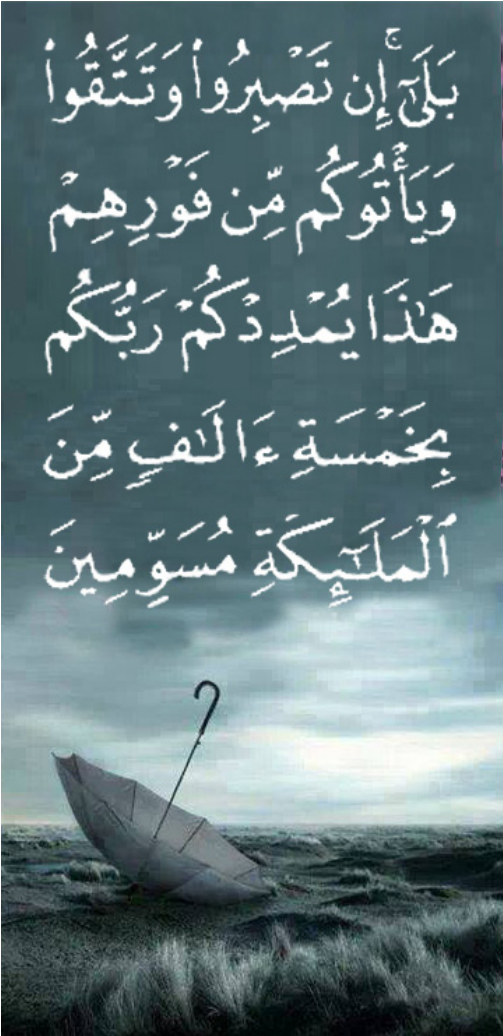 بَلَىٰٓۚ إِن تَصْبِرُوا۟ وَتَتَّقُوا۟
وَيَأْتُوكُم مِّن فَوْرِهِمْ
هَٰذَا يُمْدِدْكُمْ رَبُّكُم
بِخَمْسَةِ ءَالَٰفٍ مِّنَ
ٱلْمَلَٰٓئِكَةِ مُسَوِّمِينَ